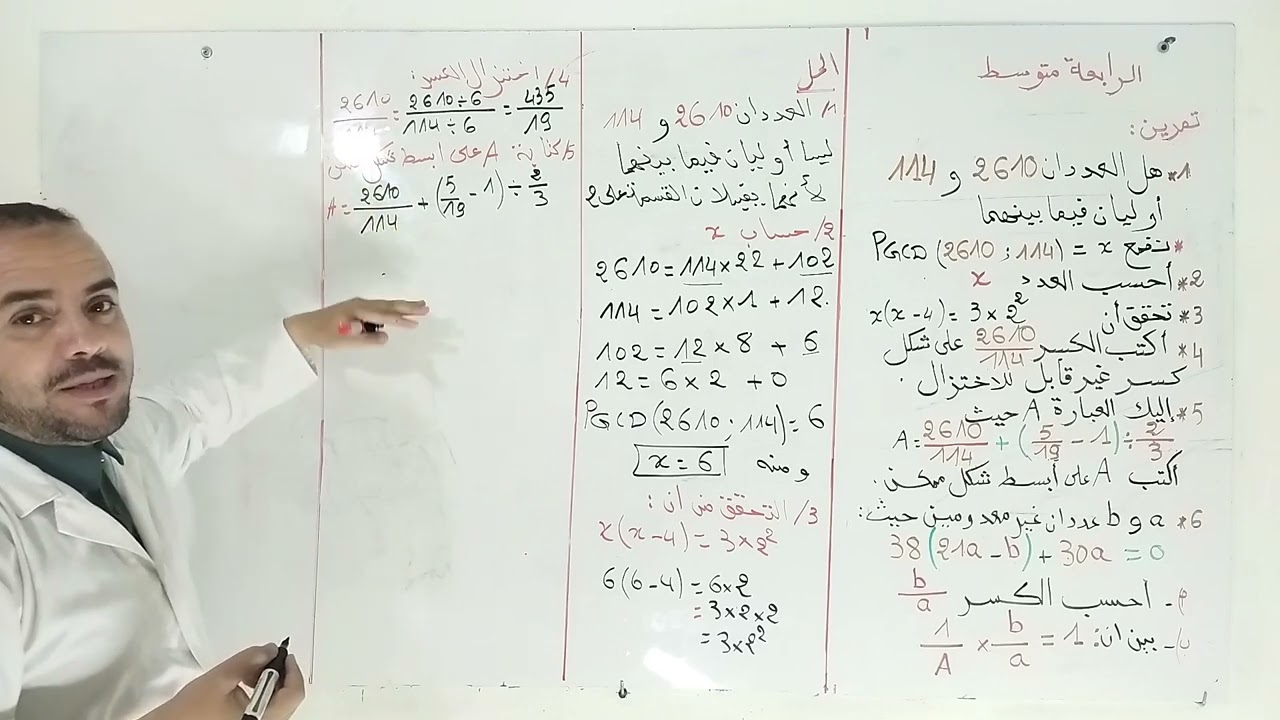 الرابعة متوسط
تمرين:
1* هل العددان 2610 و 114
أوليان فيما بينهما
* نضع PGCD (2610 ; 114) = x
2* أحسب العدد x
3* تحقق أن x(x-4) = 3×2²
4* أكتب الكسر 2610/114 على شكل
كسر غير قابل للاختزال.
5* إليك العبارة A حيث
A = 2610/114 + (5/19 - 1) ÷ 2/3
أكتب A على أبسط شكل ممكن.
6* a و b عددان غير معدومين حيث:
38(21a - b) + 30a = 0
أحسب الكسر b/a
بين أن: 1/A × b/a = 1
الحل
1/ العددان 2610 و 114
ليسا أوليان فيما بينهما
لأنهما يقبلان القسمة على 2
2/ حساب x
2610 = 114×22 + 102
114 = 102×1 + 12.
102 = 12×8 + 6
12 = 6×2 + 0
PGCD(2610 ; 114) = 6
ومنه x = 6
3/ التحقق من أن:
x(x-4) = 3×2²
6(6-4) = 6×2
= 3×2×2
= 3×2²
4/ اختزال الكسر:
2610/114 = 2610÷6/114÷6 = 435/19
5/ كتابة A على أبسط شكل
A = 2610/114 + (5/19 - 1) ÷ 2/3